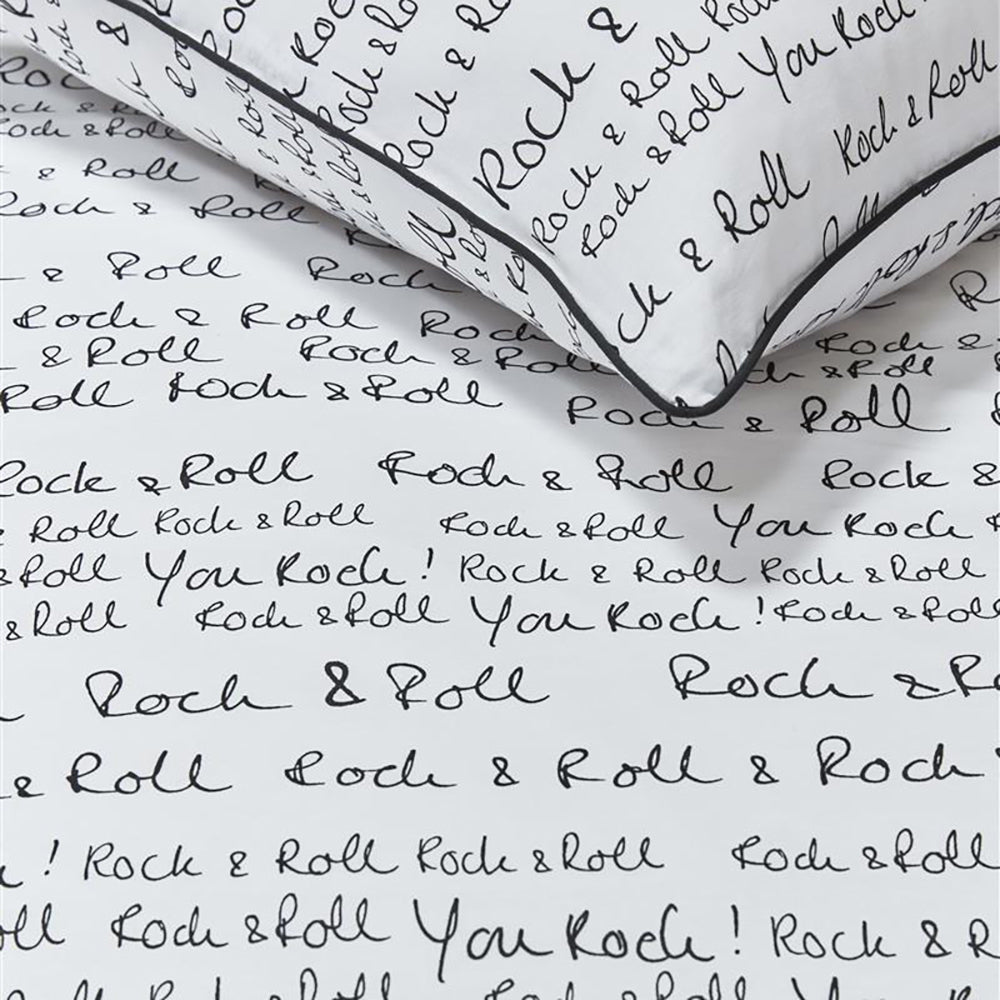 Rock &
Rock & Roll Rock
Rock & Roll You Rock
Rock & Roll
& Roll Rock & Roll
Rock & Roll
& Roll
Rock & Roll
& Roll Rock
Rock & Roll Rock
& Roll Rock & Roll Rock &
Roll Rock & Roll & Roll
Rock & Roll
Rock & Roll Rock & Roll Rock &
Roll Rock & Roll Rock & Roll You Rock
& Roll You Rock! Rock & Roll Rock & Roll
& Roll Rock & Roll You Rock! Rock & Roll
Rock & Roll Rock &
& Roll Rock & Roll & Rock
! Rock & Roll Rock & Roll Rock & Roll
Rock & Roll You Rock! Rock &